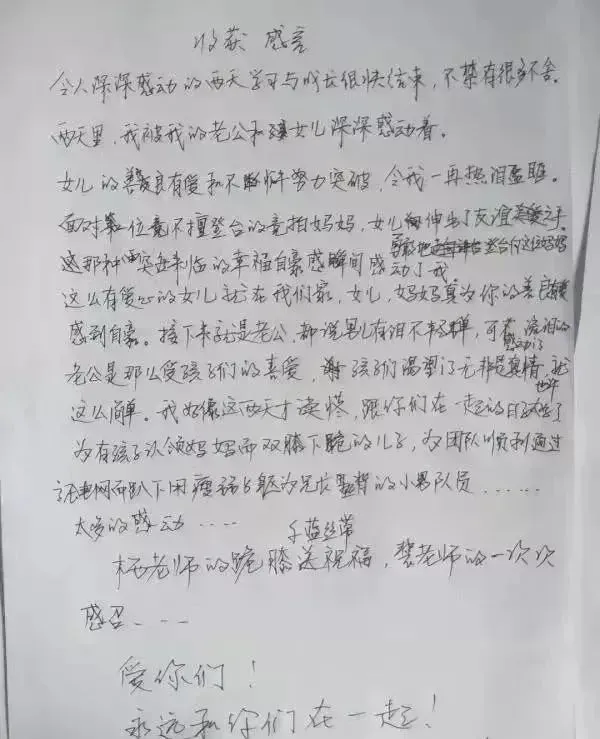 收获 感言
令人深深感动的两天学习与成长很快结束，不禁有很多不舍。
两天里，我被我的老公和女儿深深感动着。
女儿的善良有爱和不断努力突破，令我一再热泪盈眶。
面对位毫不擅登台的竞拍妈妈，女儿伸出了友谊之手
勇敢地登台向这位妈妈
这那种突然来临的幸福自豪感瞬间感动了我。
这么有爱心的女儿就在我们家，女儿，妈妈真为你的善良
感到自豪。接下来就是老公，都说男儿有泪不轻弹，可 流泪的
感动了
老公是那么受孩子们的喜爱，孩子们渴望了无非是真情，就
这么简单。我好像这两天才读懂，跟你们在一起的日子
为有孩子认领妈妈而双膝下跪的儿子，为团队顺利通过
网而趴下用瘦弱身躯为兄成的小男队员......
太多的感动....
千蓝丝带
杨老师的跪膝送祝福，老师的一次次
感召....
爱你们！
永远和你们在一起！